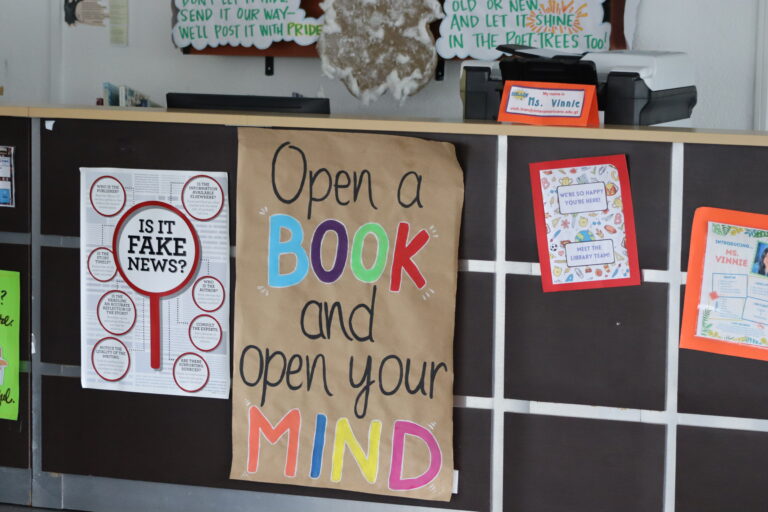 DON'T LET IT HIDE.
SEND IT OUR WAY-
WE'LL POST IT WITH PRIDE
OLD OR NEW
AND LET IT SHINE
IN THE POET-TREES TOO!
My name is
Ms. Vinnie
WHO IS THE
PUBLISHER?
IS THE
INFORMATION
AVAILABLE
ELSEWHERE?
IS IT
FAKE
NEWS?
IS THE
STORY
TIMELY?
IS THE
HEADLINE AN
ACCURATE
REFLECTION OF
THE STORY?
WHO
IS THE
AUTHOR?
CONSULT
THE EXPERTS.
NOTICE THE
QUALITY OF THE
WRITING.
ARE THERE
SUPPORTING
SOURCES?
Open a
BOOK
and
open your
MIND
WE'RE SO HAPPY
YOU'RE HERE!
MEET THE
LIBRARY TEAM!
INTRODUCING...
MS.
VINNIE